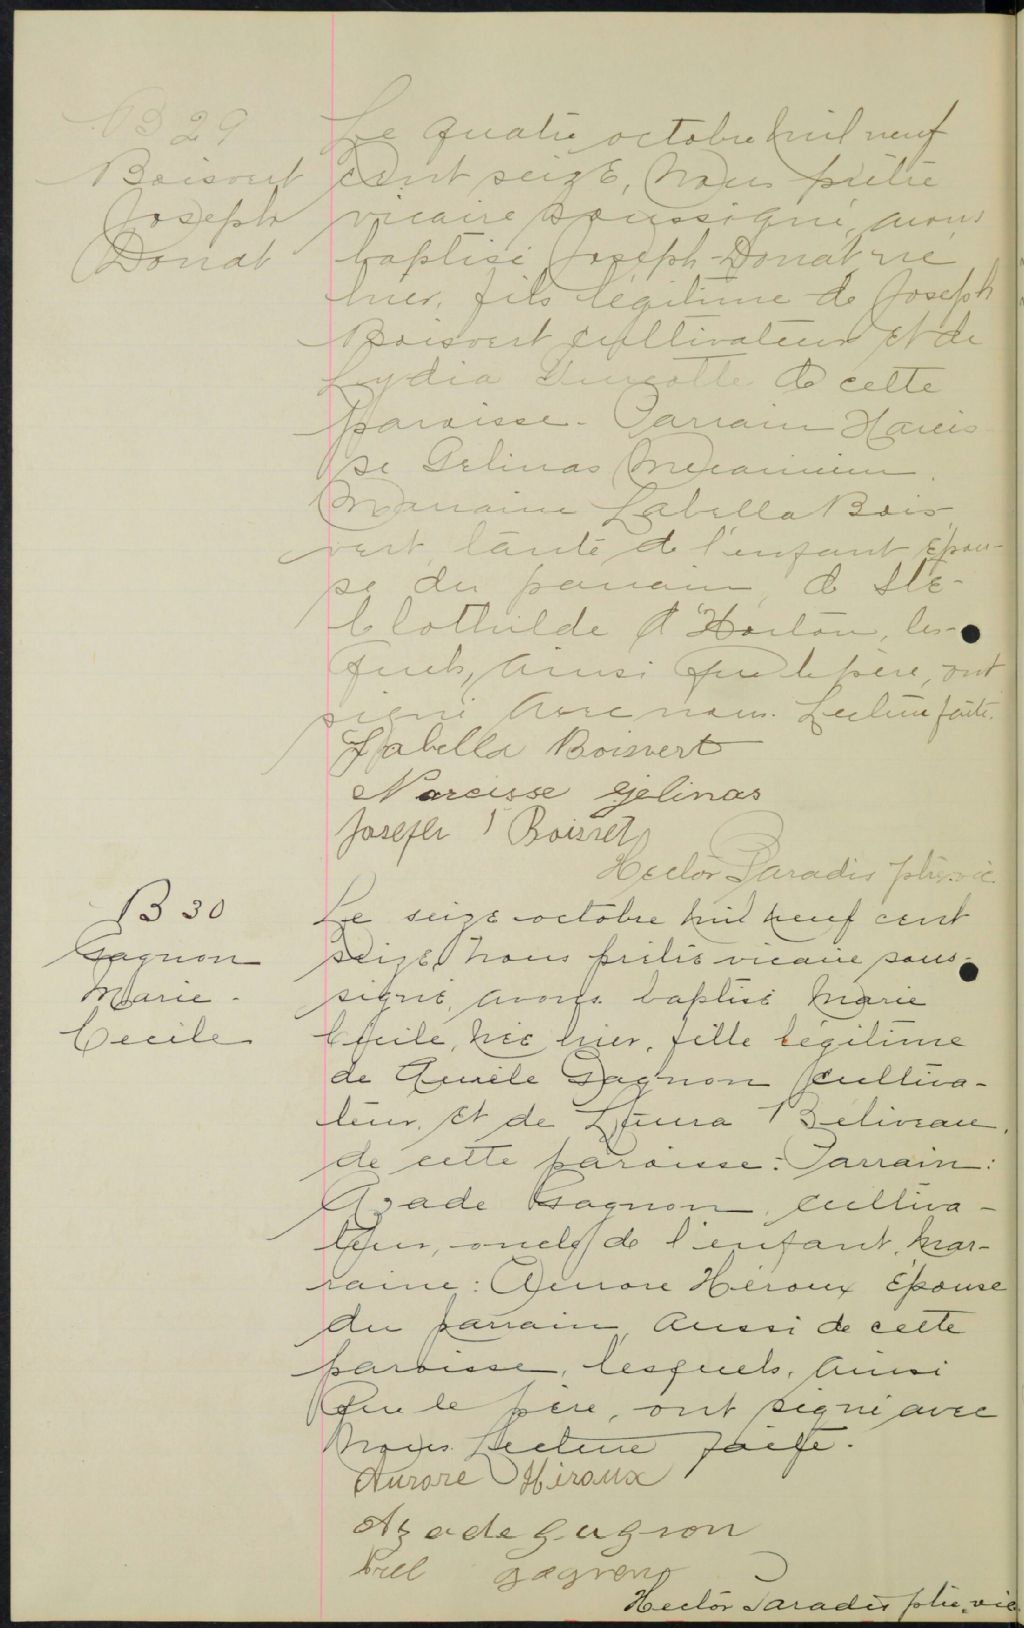 B 29
Boisvert
Joseph
Donat
Le quatre octobre mil neuf
cent seize, Nous prêtre
vicaire soussigné, avons
baptisé Joseph-Donat né
hier, fils légitime de Joseph
Boisvert cultivateur et de
Lydia Turcotte de cette
paroisse. Parrain Narcis-
se Gelinas Mécanicien.
Marraine Labella Bois-
vert, tante de l'enfant épou-
se du parrain, de Ste-
Clothilde d'Horton, les-
quels, ainsi que le père, ont
signé avec nous. Lecture faite.
Labella Boisvert
Narcisse Gelinas
Joseph Boisvet
Hector Paradis ptre. vic.
B 30
Gagnon
Marie-
Cecile
Le seize octobre mil neuf cent
seize, Nous prêtre vicaire sous-
signé, avons baptisé Marie
Cécile, née hier, fille légitime
de Aurèle Gagnon cultiva-
teur, et de Laura Béliveau,
de cette paroisse. Parrain:
Azade Gagnon, cultiva-
teur, oncle de l'enfant, mar-
raine: Aurore Héroux épouse
du parrain, aussi de cette
paroisse, lesquels, ainsi
que le père, ont signé avec
nous. Lecture faite.
Aurore Héroux
Azade Gagnon
gagnon
Hector Paradis ptre. vic.